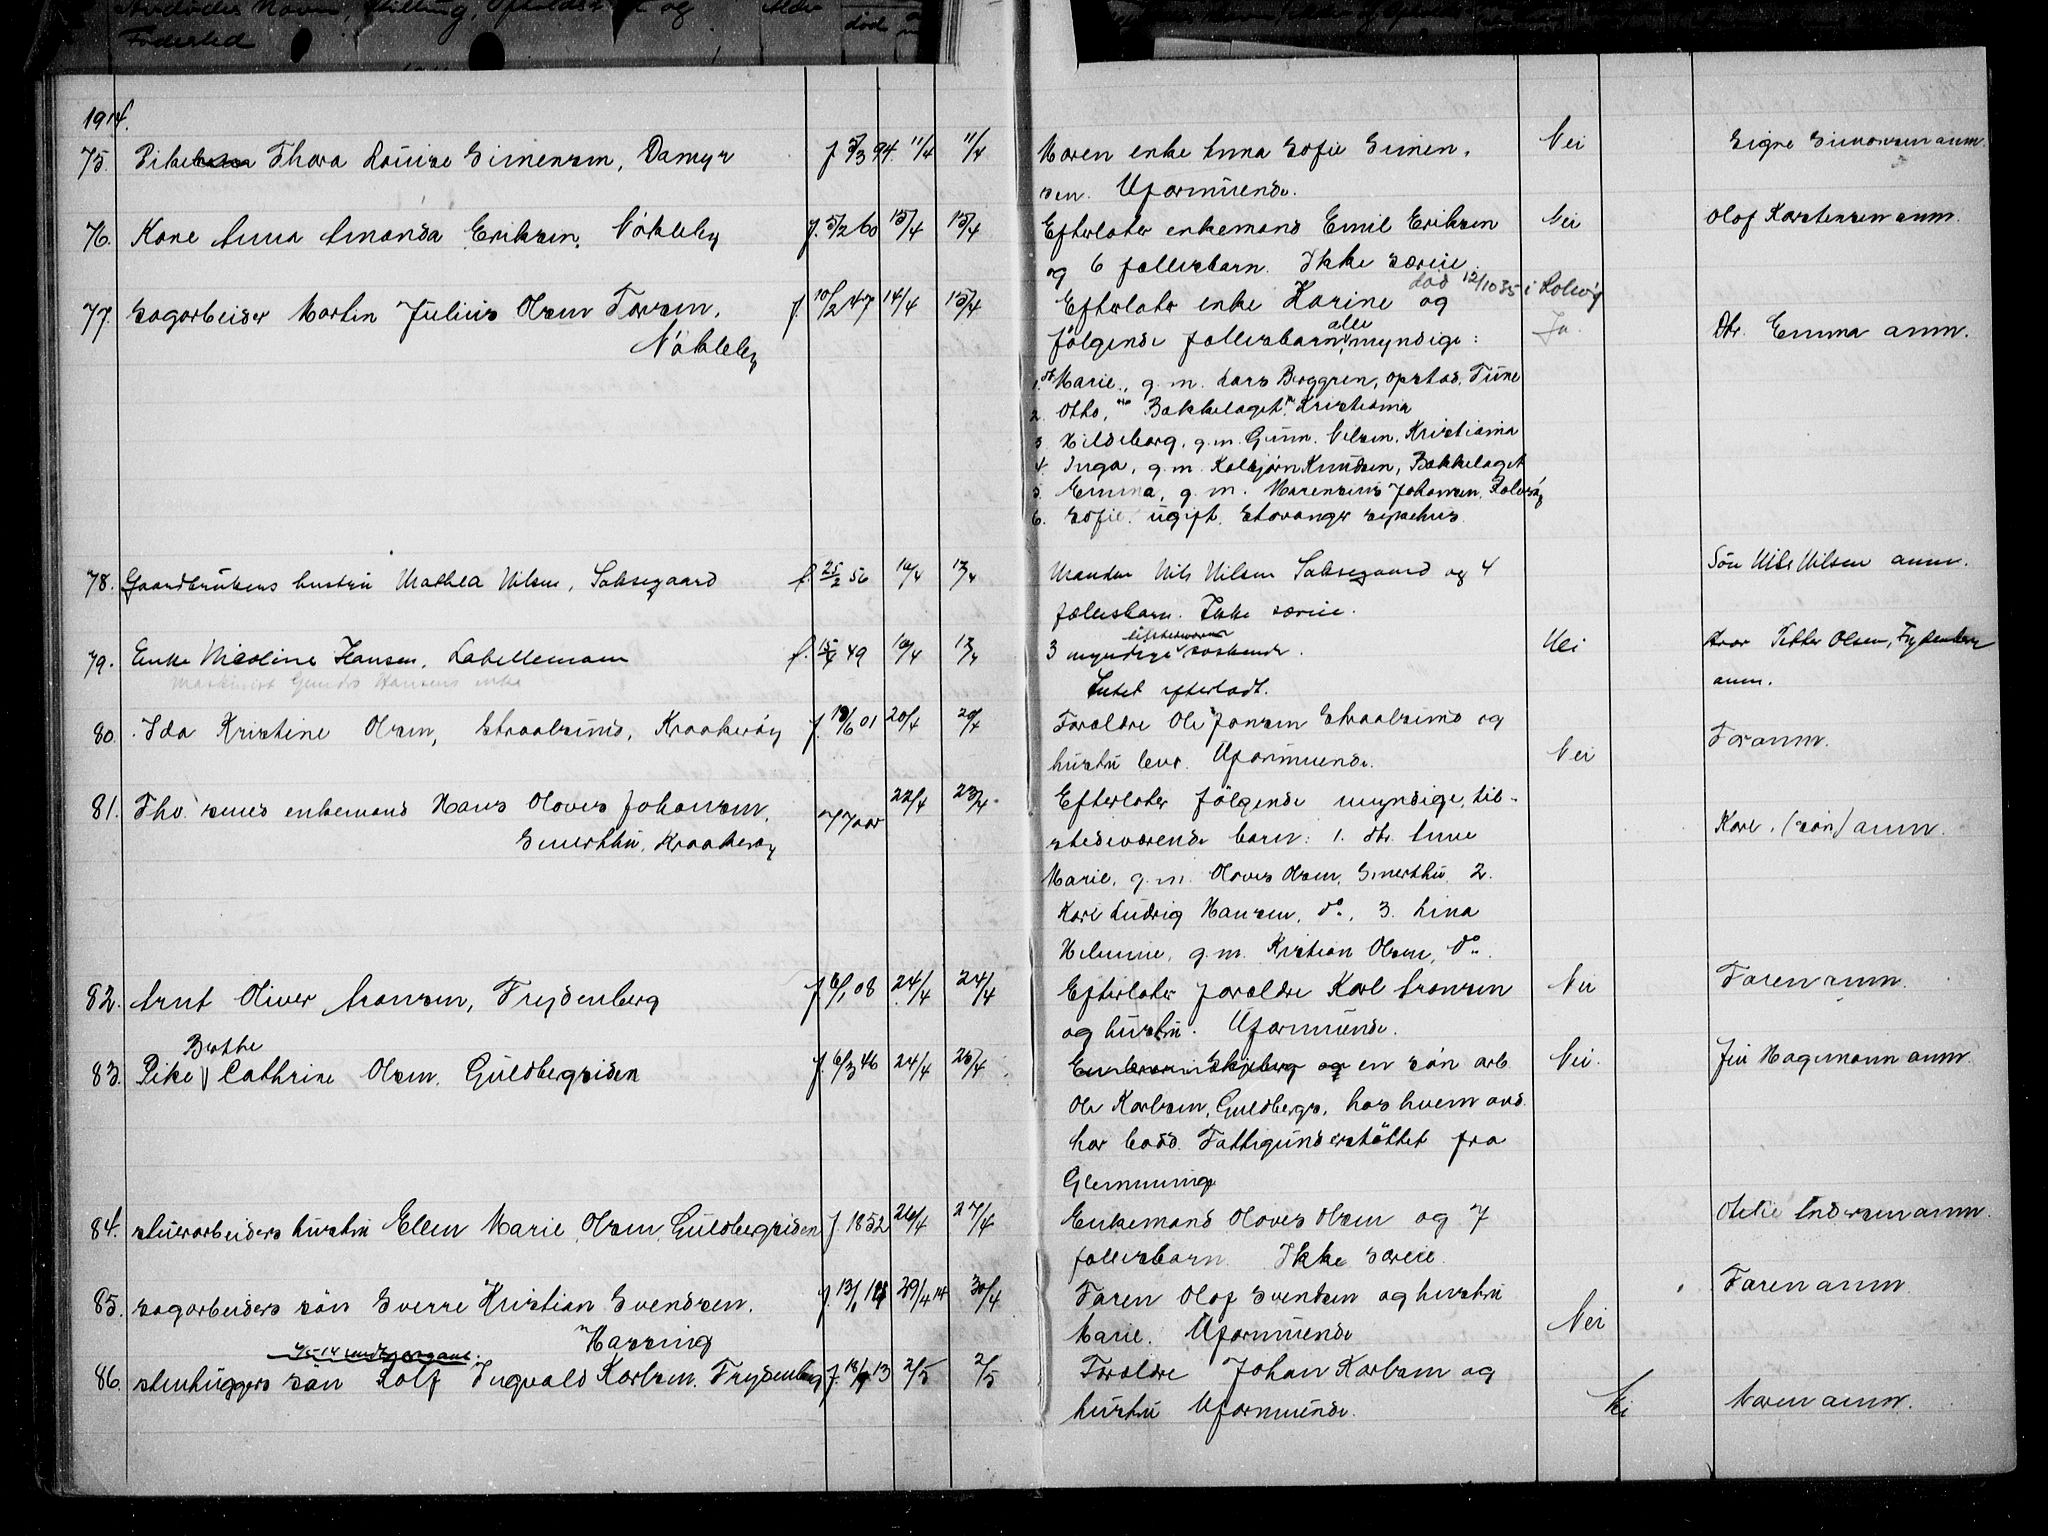 Avdödes Navn, Stilling, Opholdssted og
Födested
Alder
död
1914.
75. Pike Thora Louise Simensen, Damyr f. 5/3 94 11/4 11/4 Moren enke Anna Sofie Simen- Nei Signe Simonsen anm.
sen. Uformuende.
76. Kone Anna Amanda Eriksen, Nökleby f. 5/2 60 15/4 15/4 Efterlater enkemand Emil Eriksen Nei Olof Karstensen anm.
og 6 fællesbarn. Ikke særeie.
död 12/10 35 i Rolvsöy
77. Sagarbeider Martin Julius Olsen Torsen, f. 10/2 47 14/4 15/4 Efterlater enke Karine og
Nökleby følgende fællesbarn, alle myndige: Ja. Dtr. Emma anm.
1. Marie, g. m. Lars Berggren, opstad, Tune
2. Otto, Bækkelaget, Kristiania
3. Hildeborg, g. m. Gunn. Nilsen, Kristiania
4. Inga, g. m. Kolbjørn Knudsen, Bækkelaget
5. Emma, g. m. Marensius Johansen, Rolvsöy
6. Sofie, ugift, Stavanger sykehus.
78. Gaardbrukers hustru Mathea Nilsen, Saksegaard f. 25/2 56 10/4 17/4 Manden Nils Nilsen Saksegaard og 4 Sön Nils Nilsen anm.
fællesbarn. Ikke særeie.
79. Enke Nicoline Hansen, Labellemoen f. 49 10/4 17/4 3 myndige søskende. Nei bror Petter Olsen, Frydenberg
Maskinist Hansens enke Intet efterladt. anm.
80. Ida Kristine Olsen, Straalsund, Kraakeröy f. 18/6 01 20/4 20/4 Forældre Ole Jonsen Straalsund og Far anm.
hustru lever. Uformuende. Nei
81. Fhv. smed enkemand Hans Olaves Johansen, 77 aar 22/4 23/4 Efterlater følgende myndige, til-
Smerthu, Kraakeröy stedeværende barn: 1. dtr. Anne Karl (sön) anm.
Marie, g. m. Olaves Olsen, Smerthu, 2.
Karl Ludvig Hansen, do, 3. Lina
Helmine, g. m. Kristian Olsen, do.
82. Arnt Oliver Aronsen, Frydenberg f. 6/1 08 24/4 24/4 Efterlater forældre Karl Aronsen Nei Faren anm.
og hustru. Uformuende.
Berthe
83. Pike Cathrine Olsen, Guldbergsiden f. 6/3 46 24/4 25/4 Skjeberg og en sön arb. Nei. Jul Hagemann anm.
Ole Karlsen, Guldbergs, hos hvem avd.
har bodd. Fattigunderstöttet fra
Glemminge
84. Murarbeiders hustru Ellen Marie Olsen, Guldbergsiden f. 1852 26/4 27/4 Enkemand Olaves Olsen og 7 Otelie Andersen anm.
fællesbarn. Ikke særeie.
85. Sagarbeiders sön Sverre Kristian Svendsen, f. 13/1 14 29/4 14 30/4 Faren Olaf Svendsen og hustru Faren anm.
Marie. Uformuende Nei
86. Stenhuggers sön Rolf Ingvald Karlsen, Frydenberg f. 18/9 13 2/5 2/5 Forældre Johan Karlsen og
hustru Uformuende. Nei Moren anm.